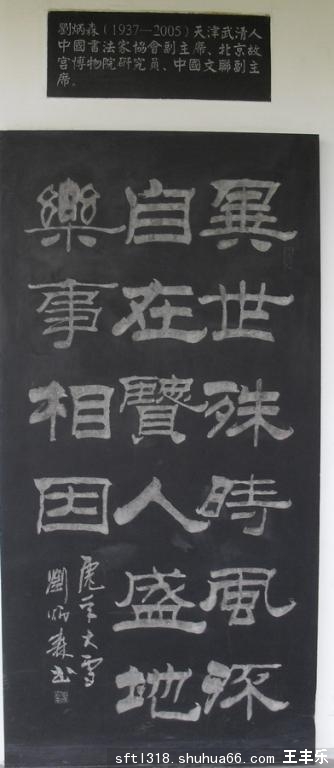 劉炳森（1937—2005）天津武清人
中國書法家協會副主席、北京故
宮博物院研究員、中國文聯副主
席。
異世殊時風流
自在覽人盛地
樂事相因
虎年大雪
劉炳森书
sftl318.shuhua66.com 王丰乐